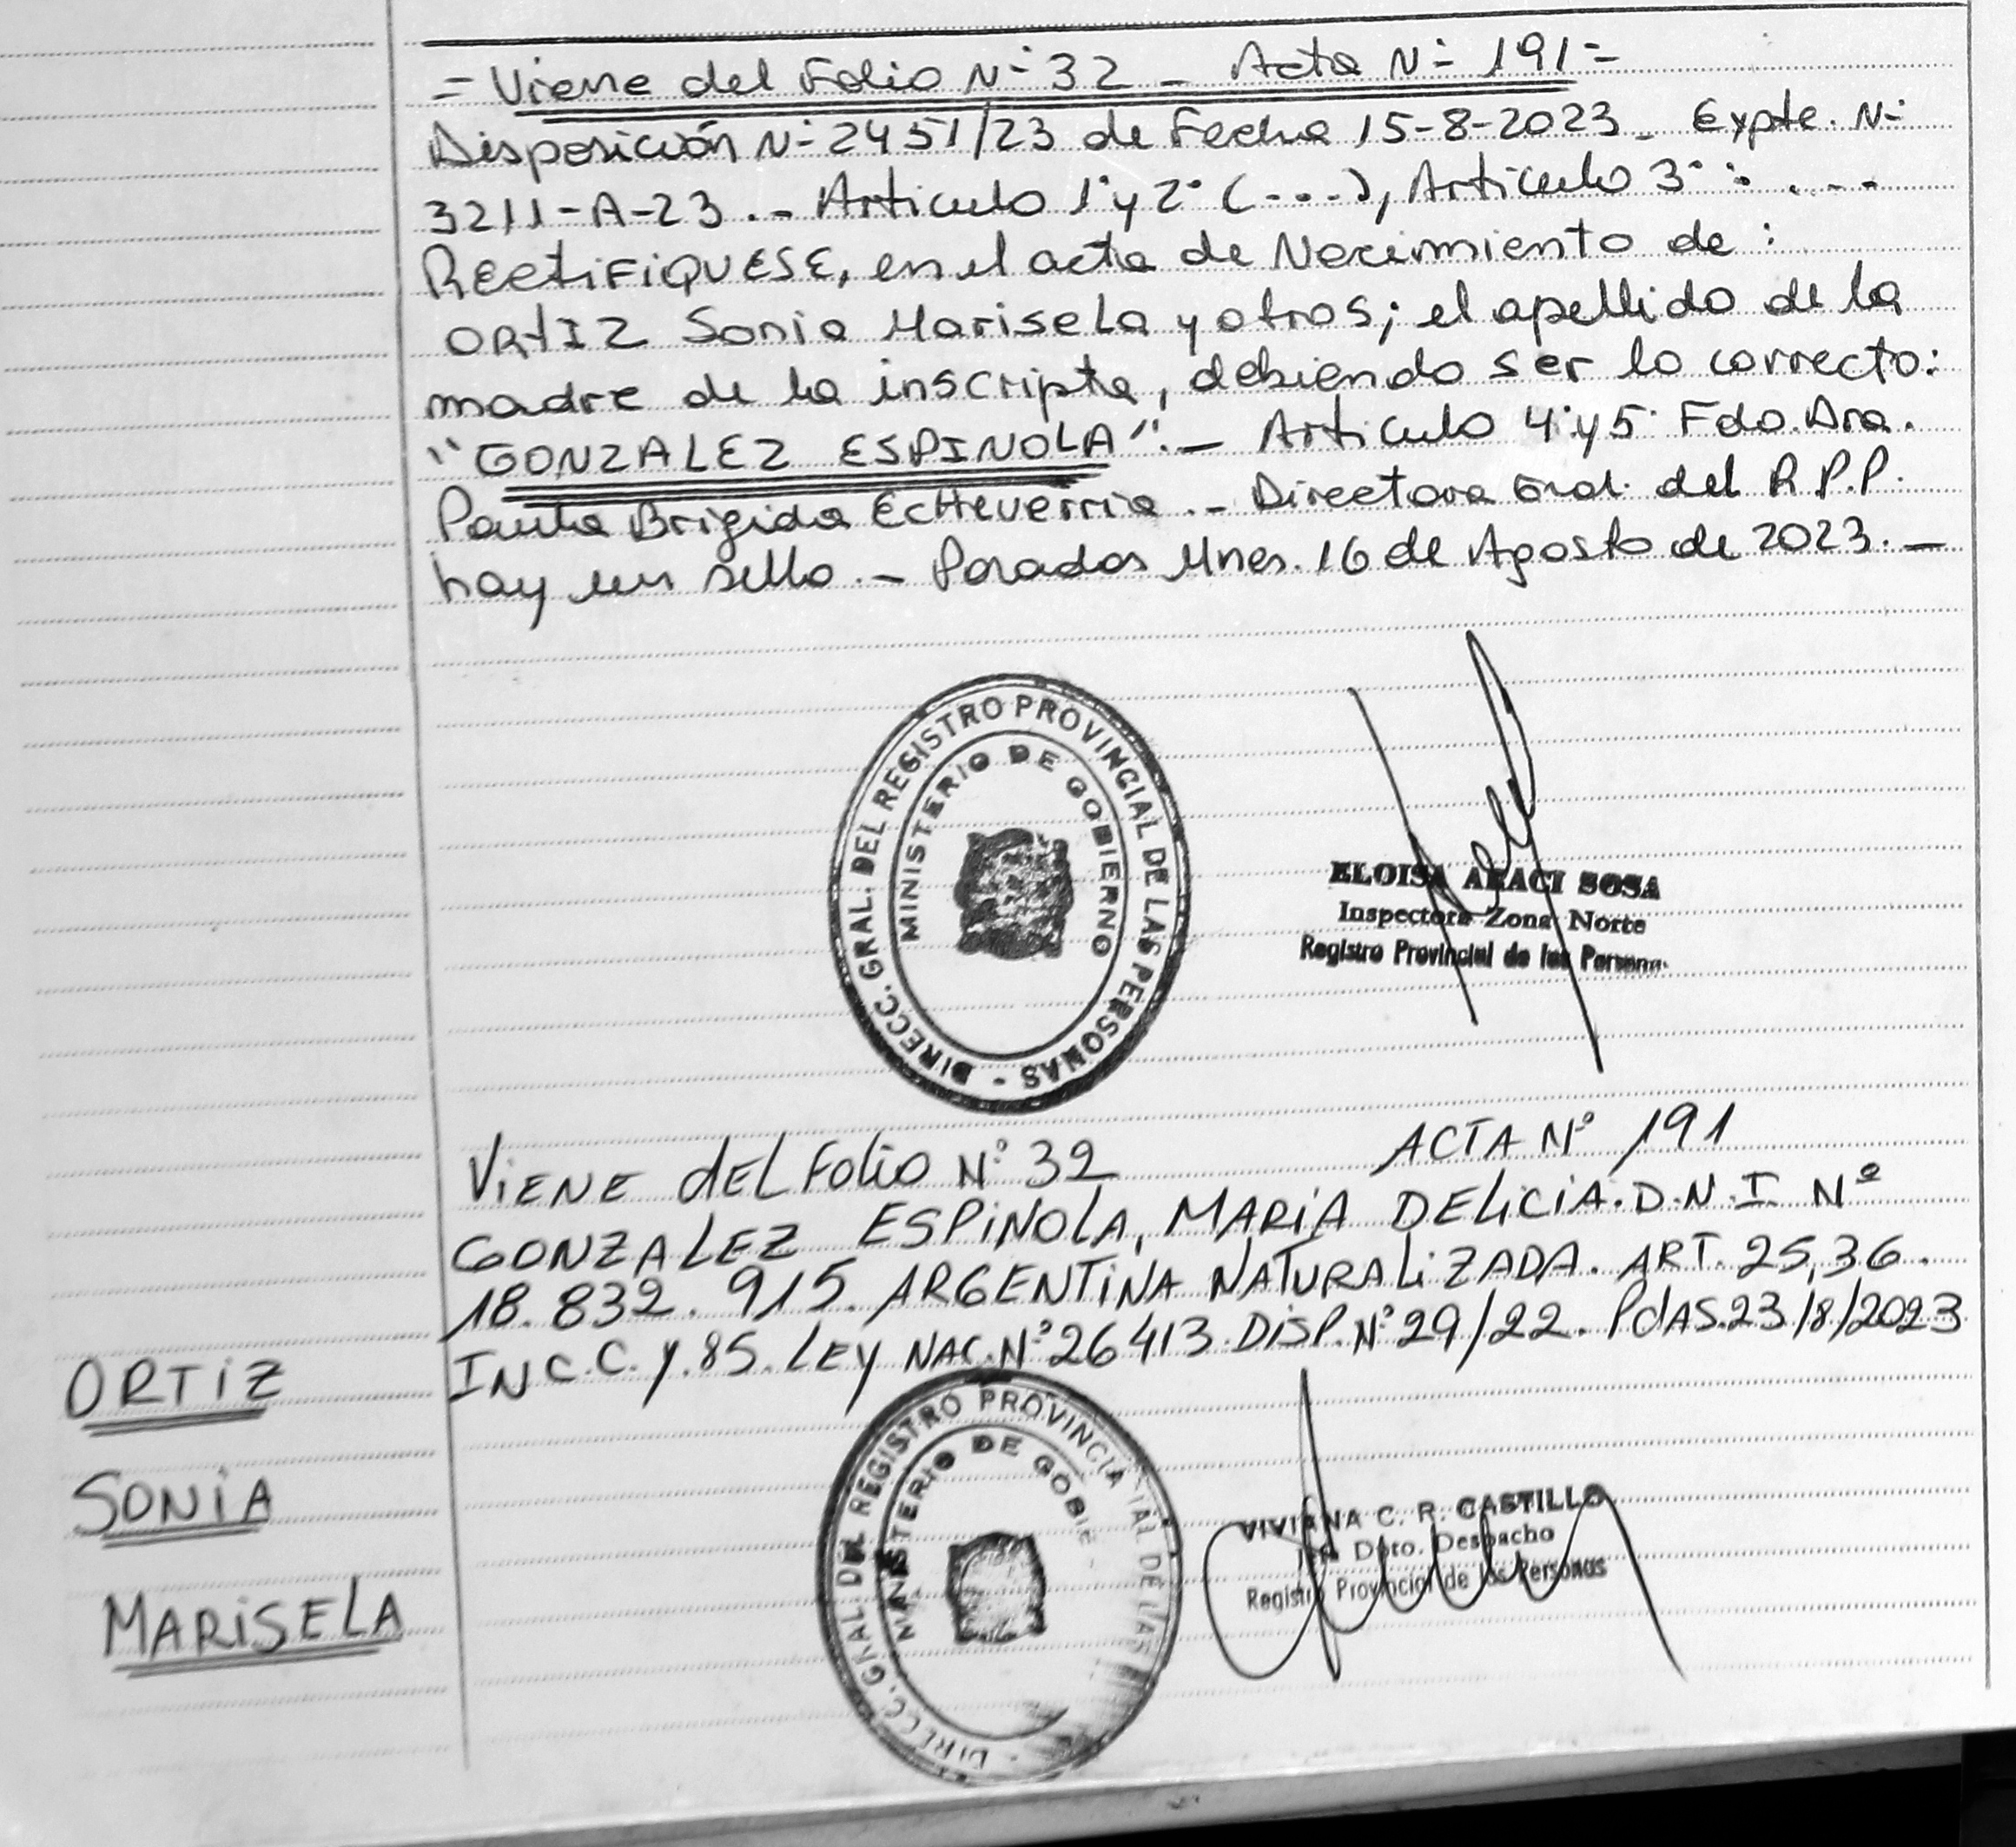 = Viene del Folio N- 32 _ Acta N- 191 =
Disposición N- 2451/23 de Fecha 15-8-2023_ Expte. N-
3211-A-23._ Articulo 1° y 2° (---), Articulo 3° : . . --
RECtiFiQUESE, en el acta de Nacimiento de :
ORtIZ Sonia Marisela y otros; el apellido de la
madre de la inscripta, debiendo ser lo correcto:
"GONZALEZ ESPINOLA"._ Articulo 4° y 5° Fdo. Dra.
Paula Brigida Echeverria._ Directora Gral. del R.P.P.
hay un sello._ Posadas Mnes. 16 de Agosto de 2023._
DIRECC. GRAL. DEL REGISTRO PROVINCIAL DE LAS PERSONAS -
MINISTERIO DE GOBIERNO
ELOISA ARACI SOSA
Inspectora Zona Norte
Registro Provincial de las Personas
ViENE dEL Folio N° 32 ACTA N° 191
GONZALEZ ESPiNOLA, MARiA DELiCiA. D.N.I. Nº
18.832.915. ARGENTiNA NATURALiZADA. ART. 25,36.
INC.C. y.85. LEY NAC.N°26413.DiSP.N°29/22. PdAS.23/8/2023
ORTiZ
SONiA
MARiSELA
DIRECC. GRAL. DEL REGISTRO PROVINCIAL DE LAS
MINISTERIO DE GOBIE
VIVIANA C. R. CASTILLO
Jefa Dpto. Despacho
Registro Provincial de las Personas